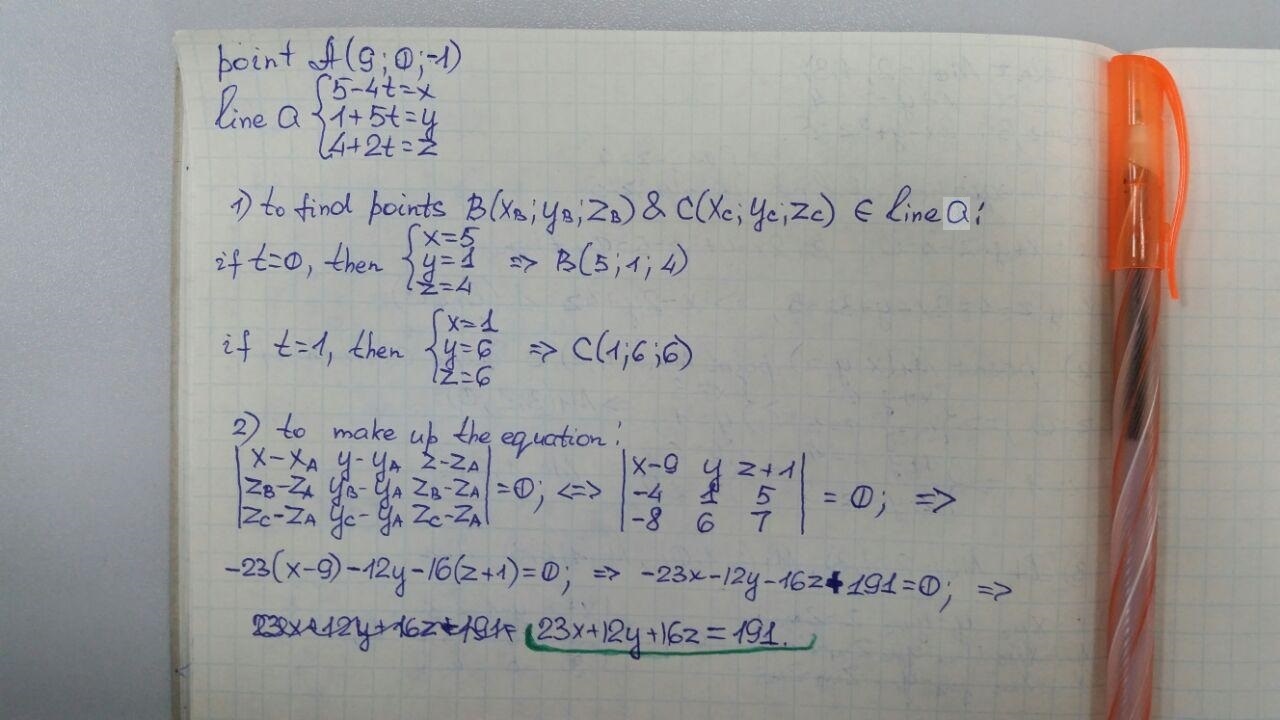 point A(9;0;-1)
line a {5-4t=x
1+5t=y
4+2t=z
1) to find points B(xB;yB;zB) & C(xC;yC;zC) ∈ line a:
if t=0, then {x=5
y=1
z=4 => B(5;1;4)
if t=1, then {x=1
y=6
z=6 => C(1;6;6)
2) to make up the equation:
|x-xA y-yA z-zA|
|zB-zA yB-yA zB-zA| =0; <=>
|zC-zA yC-yA zC-zA|
|x-9 y z+1|
|-4 1 5| =0; =>
|-8 6 7|
-23(x-9)-12y-16(z+1)=0; => -23x-12y-16z+191=0; =>
23x+12y+16z=191.